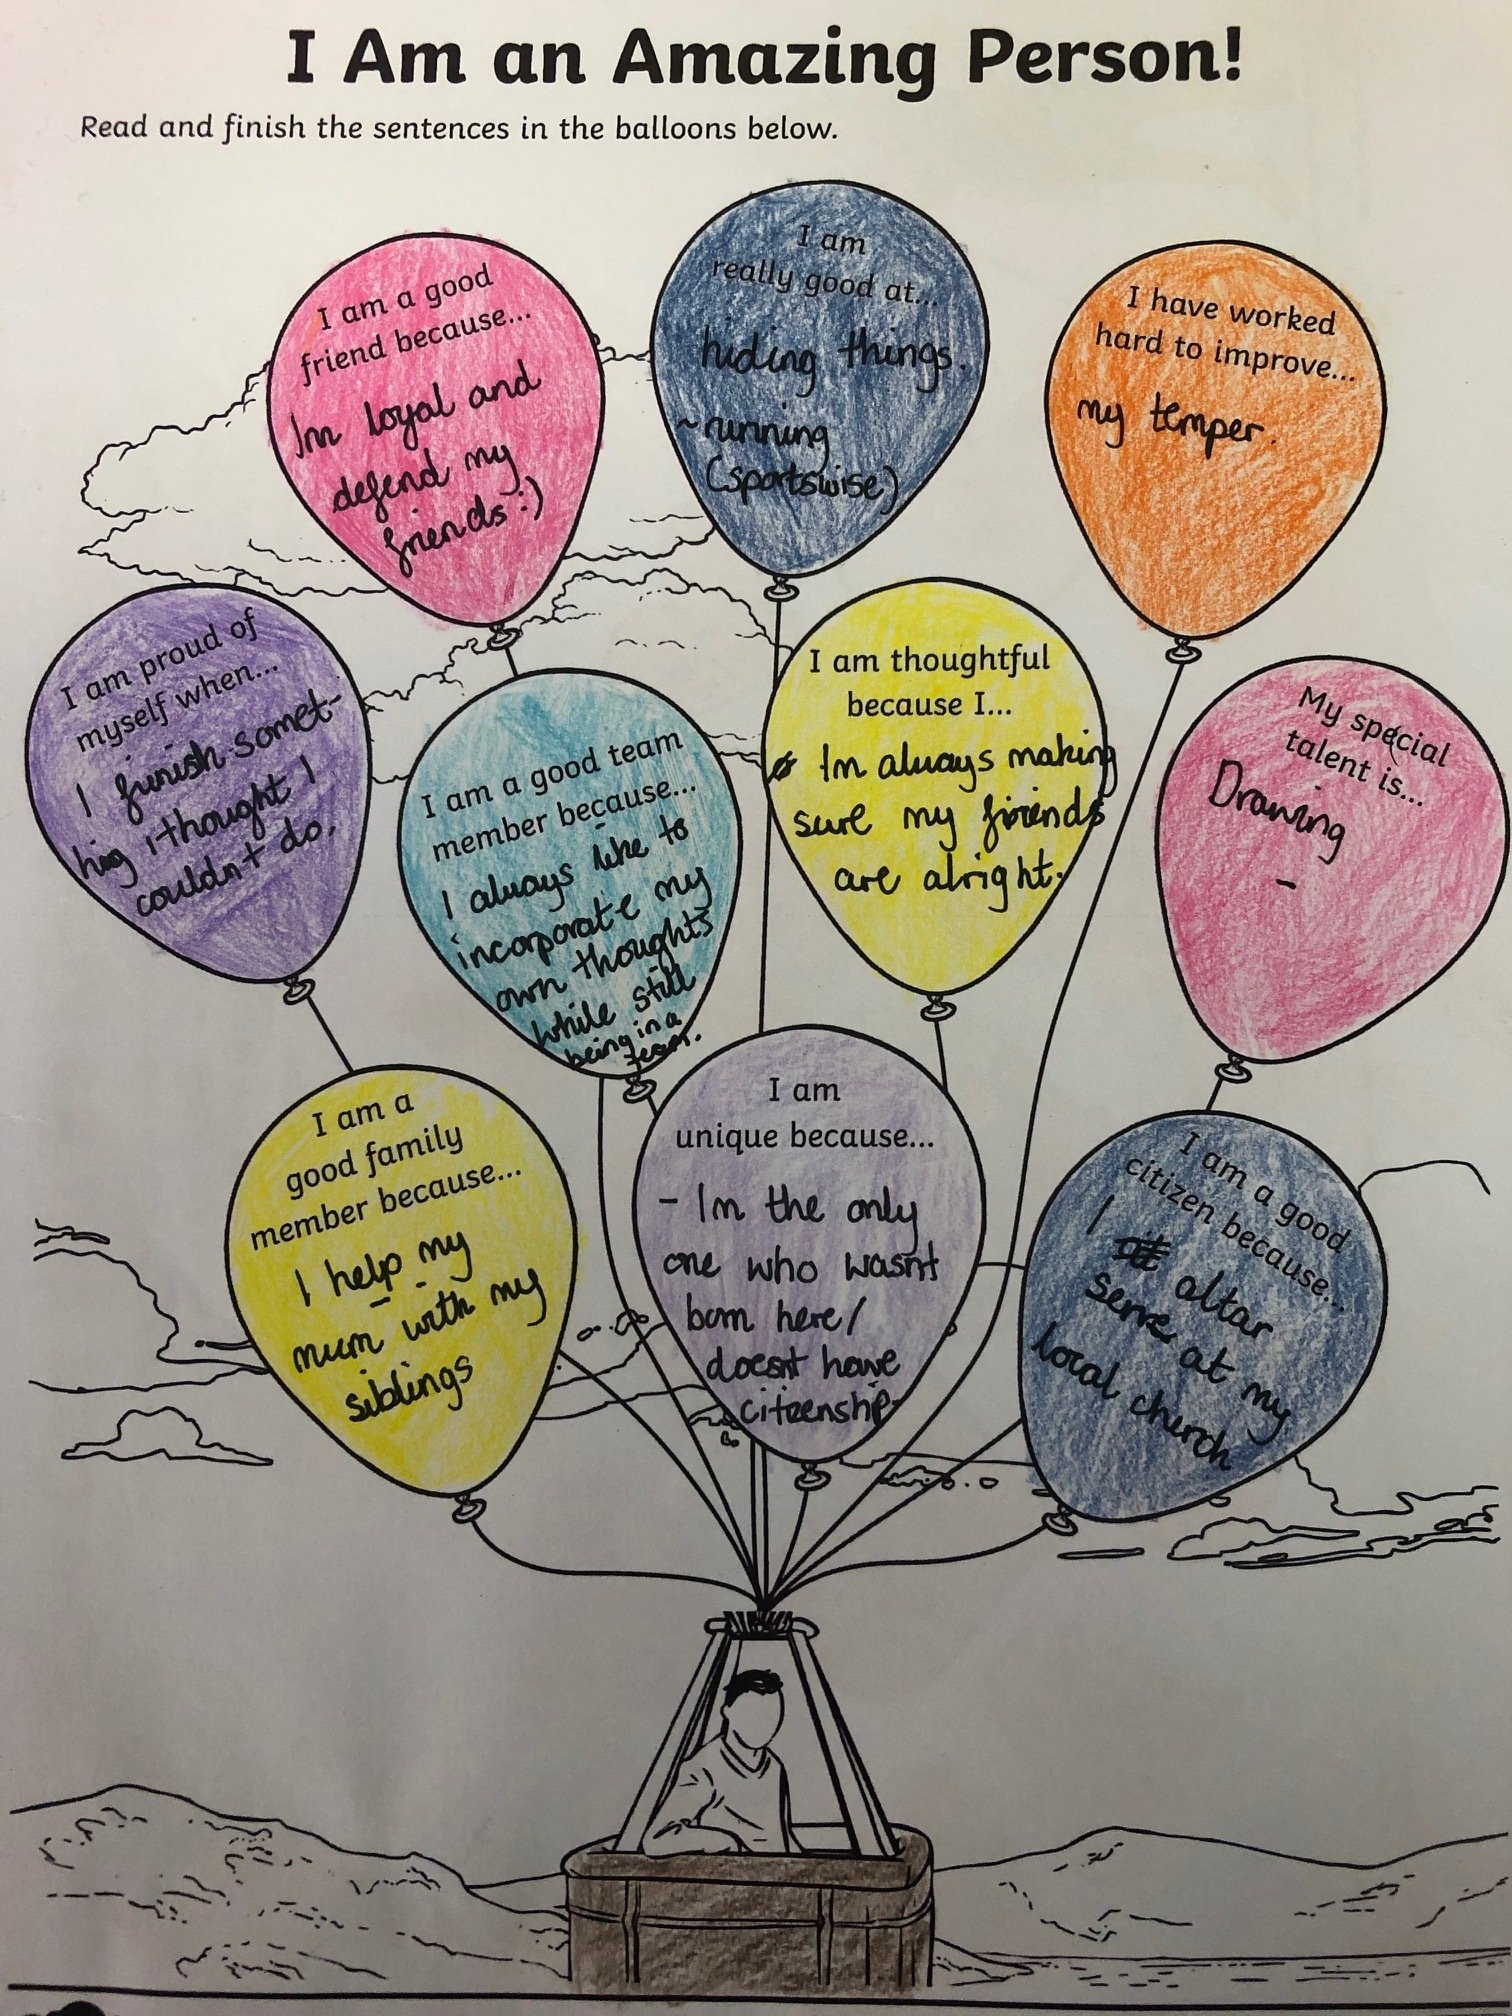 I Am an Amazing Person!
Read and finish the sentences in the balloons below.
I am a good
friend because...
Im loyal and
defend my
friends :)
I am
really good at...
hiding things.
~running
(sportswise)
I have worked
hard to improve...
my temper.
I am proud of
myself when...
I finish somet-
hing i thought I
couldn't do.
I am a good team
member because...
I always like to
incorporate my
own thoughts
while still
being in a
team.
I am thoughtful
because I...
Im always making
sure my friends
are alright.
My special
talent is...
Drawing
-
I am a
good family
member because...
I help my
mum with my
siblings
I am
unique because...
- Im the only
one who wasnt
born here/
doesnt have
citizenship
I am a good
citizen because...
I altar
serve at my
local church